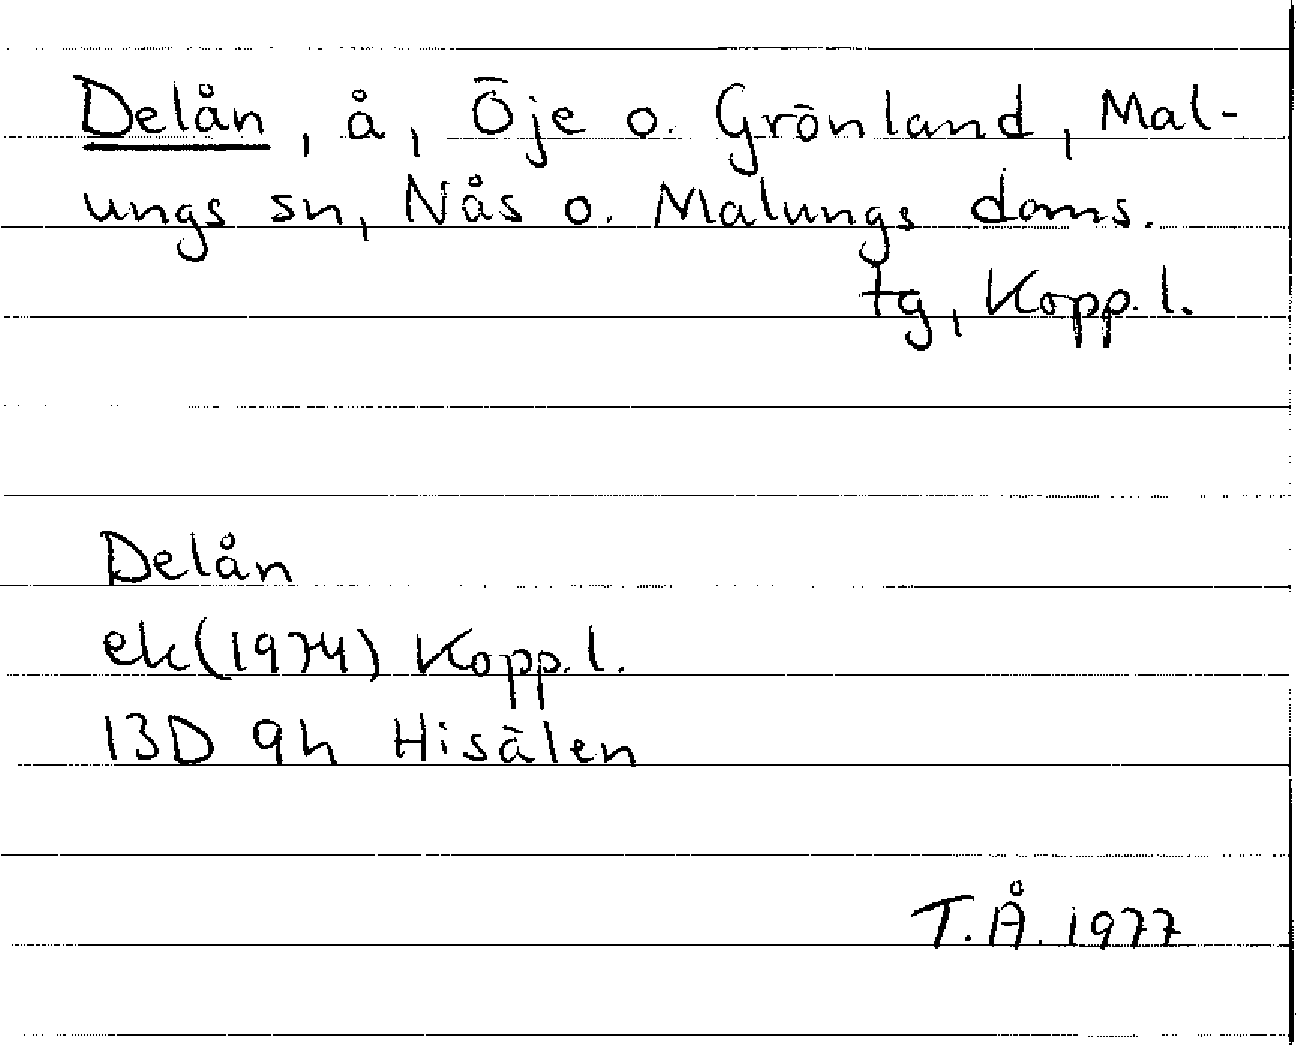 Delån, å, Öje o. Grönland, Mal-
ungs sn, Nås o. Malungs doms.
tg, Kopp. l.
Delån
ek(1974) Kopp. l.
13D 9h Hisälen
T.Å. 1977